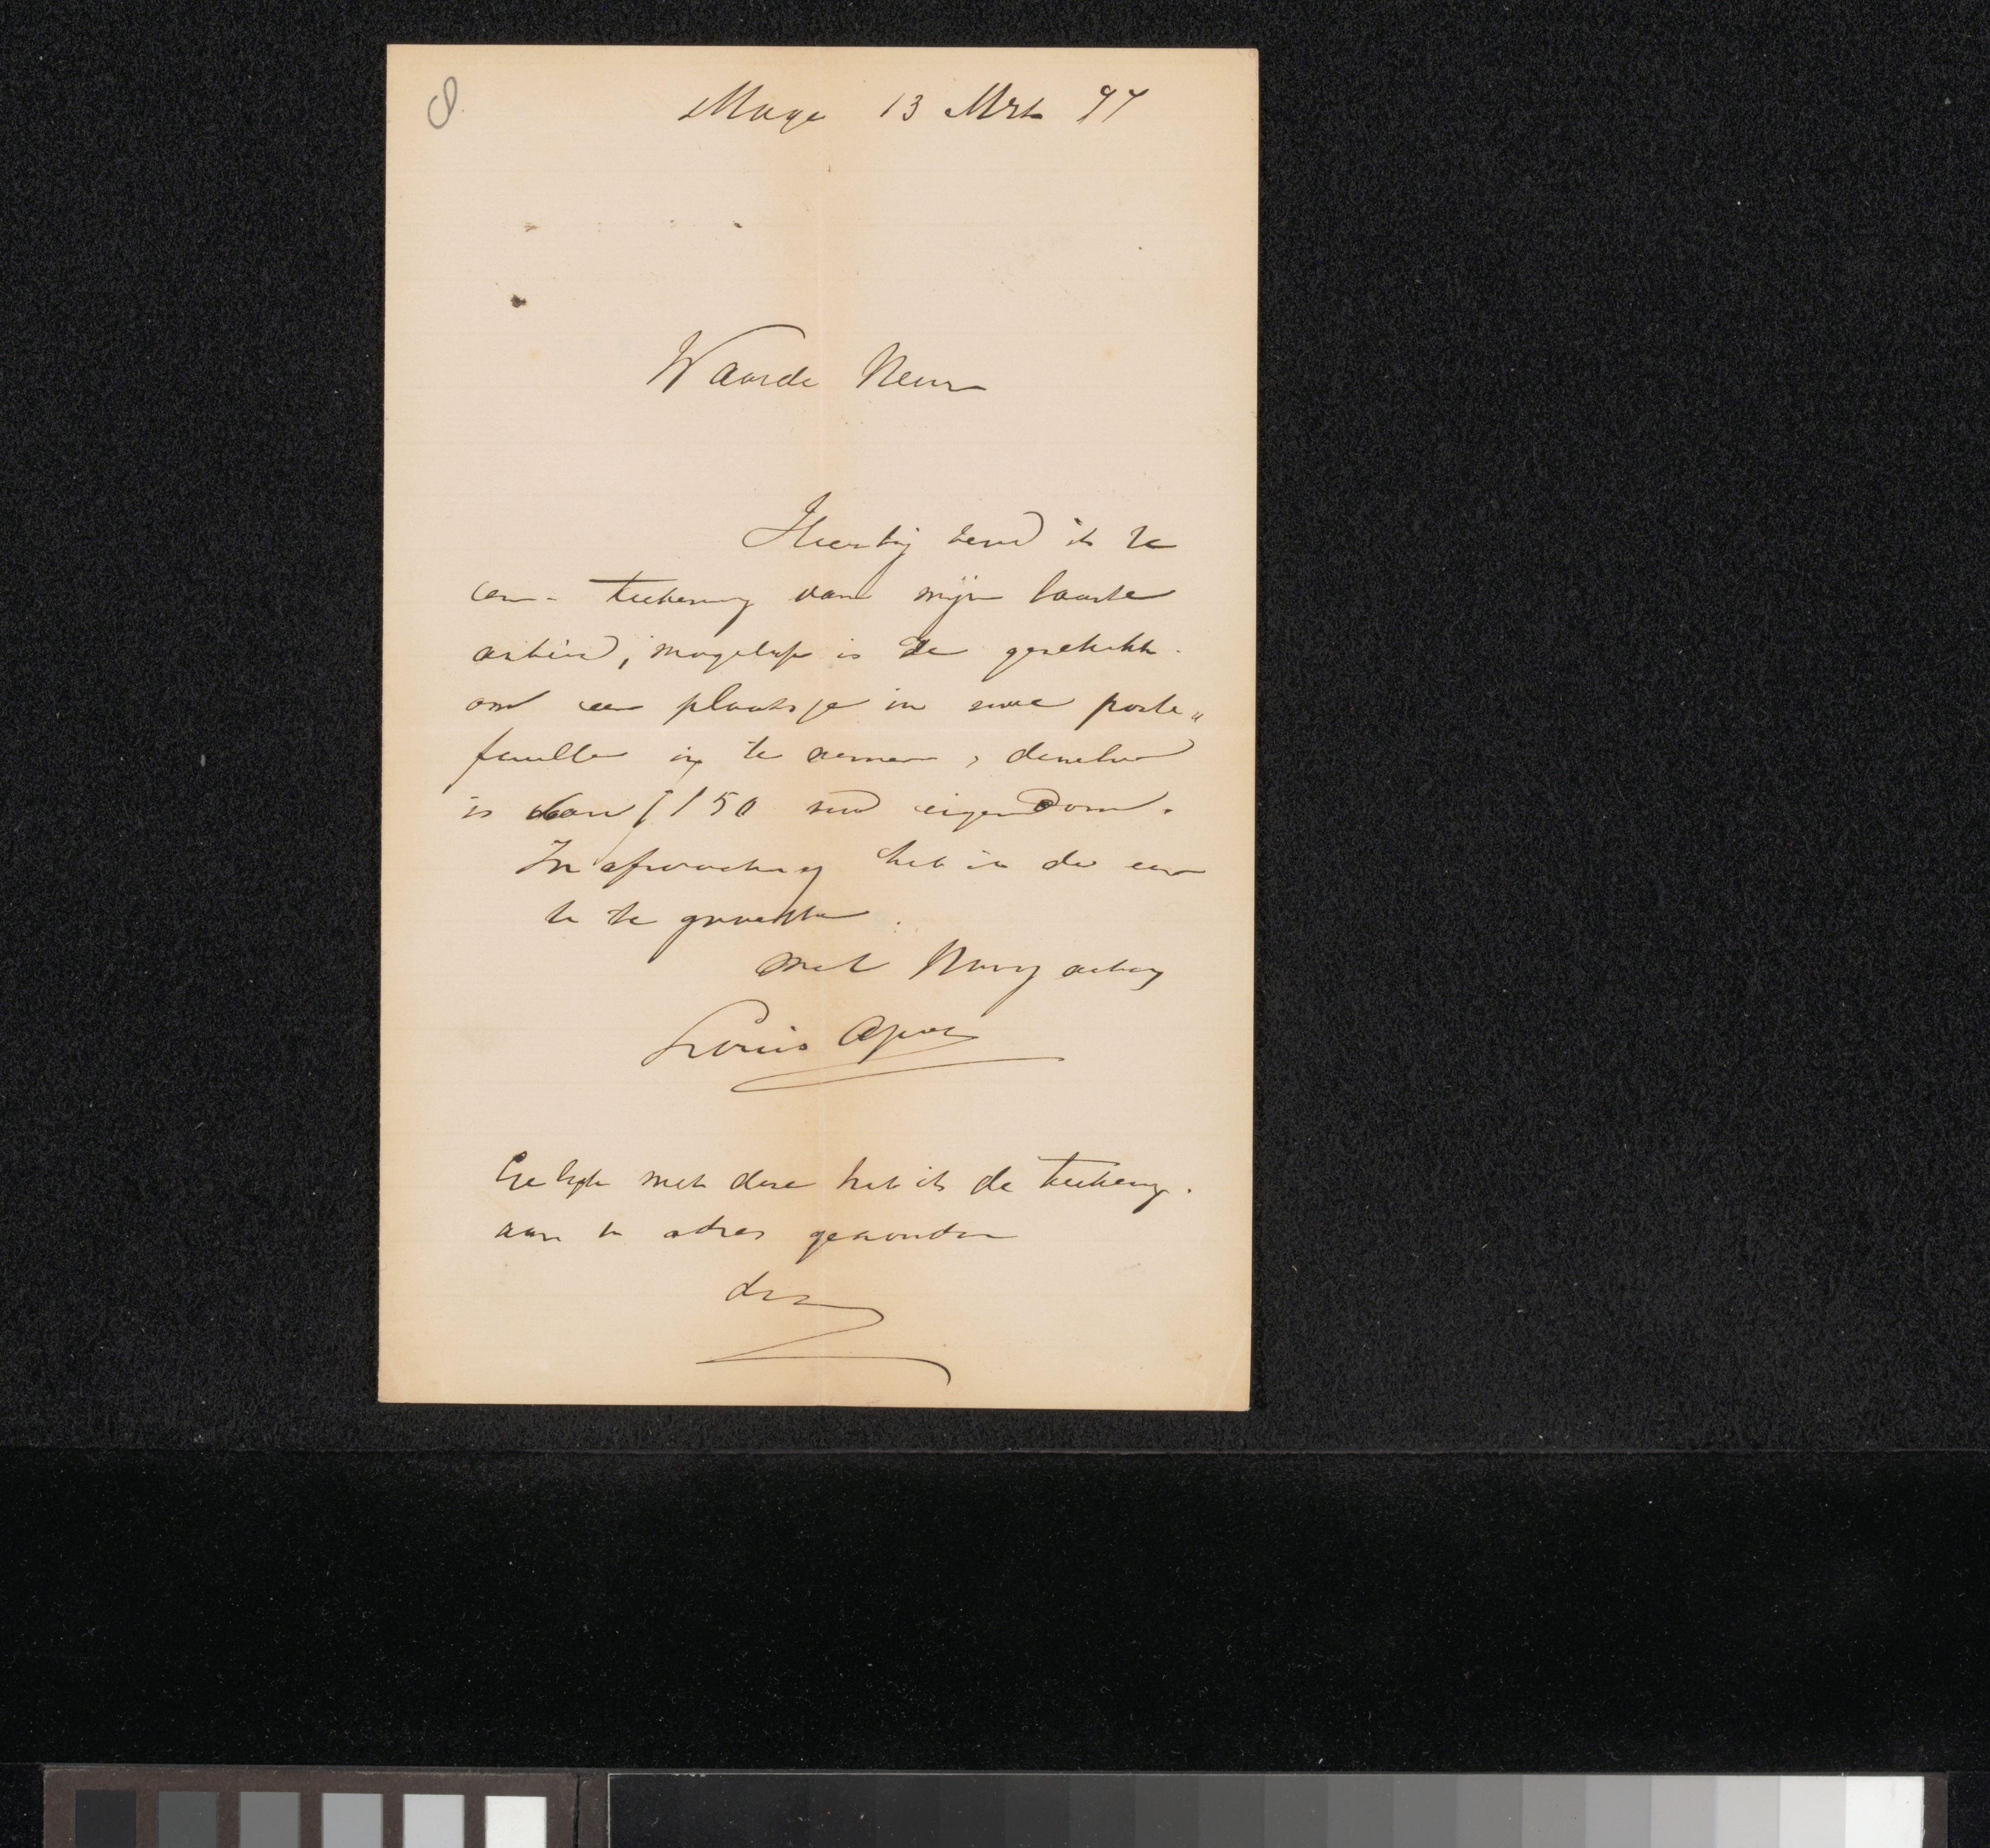 8.
Hage 13 Mrt 97
Waarde Heer
Hierbij zend ik U
een teekening van mijn laatste
arbeid, mogelijk is ze geschikt
om een plaatsje in uwe porte„
feuille in te nemen, dezelve
is voor f 150 uw eigendom.
In afwachting heb ik de eer
U te groeten.
met Hoogachting
Louis Apol
Gelijk met deze heb ik de teekening.
aan U adres gezonden